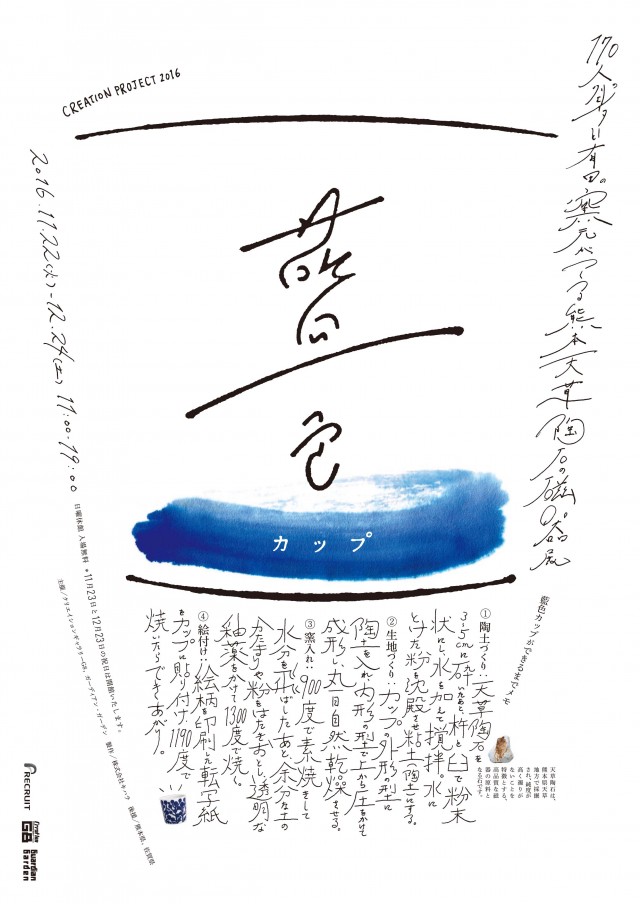 CREATION PROJECT 2016
170人のクリエイターと有田の窯元がつくる熊本天草陶石の磁器展
藍色
カップ
2016.11.22(火)-12.24(土) 11:00-19:00
日曜休館 入場無料 *11月23日と12月23日の祝日は開館いたします。
主催/クリエイションギャラリーG8、ガーディアン・ガーデン 制作/株式会社キハラ 後援/熊本県、佐賀県
藍色カップができるまでメモ
①陶土づくり:天草陶石を
3-5cmに砕いたあと、杵と臼で粉末
状にし、水を加えて攪拌。水に
とけた粉を沈殿させ粘土(陶土)にする。
②生地づくり:カップの外形の型に
陶土を入れ、内形の型で上から圧をかけて
成形し、丸一日自然乾燥させる。
③窯入れ:900度で素焼きして
水分を飛ばしたあと、余分な土の
かたまりや粉をはたきおとし、透明な
釉薬をかけて1300度で焼く。
④絵付け:絵柄を印刷した転写紙
をカップに貼り付け、1190度で
焼いたらできあがり。
天草陶石は、
熊本県天草
地方で採掘
され、純度が
高く濁りが
ないことを
特徴とする、
高品質な磁
器の原料と
なる石です。
RECRUIT
Creation
G8
Guardian
Garden